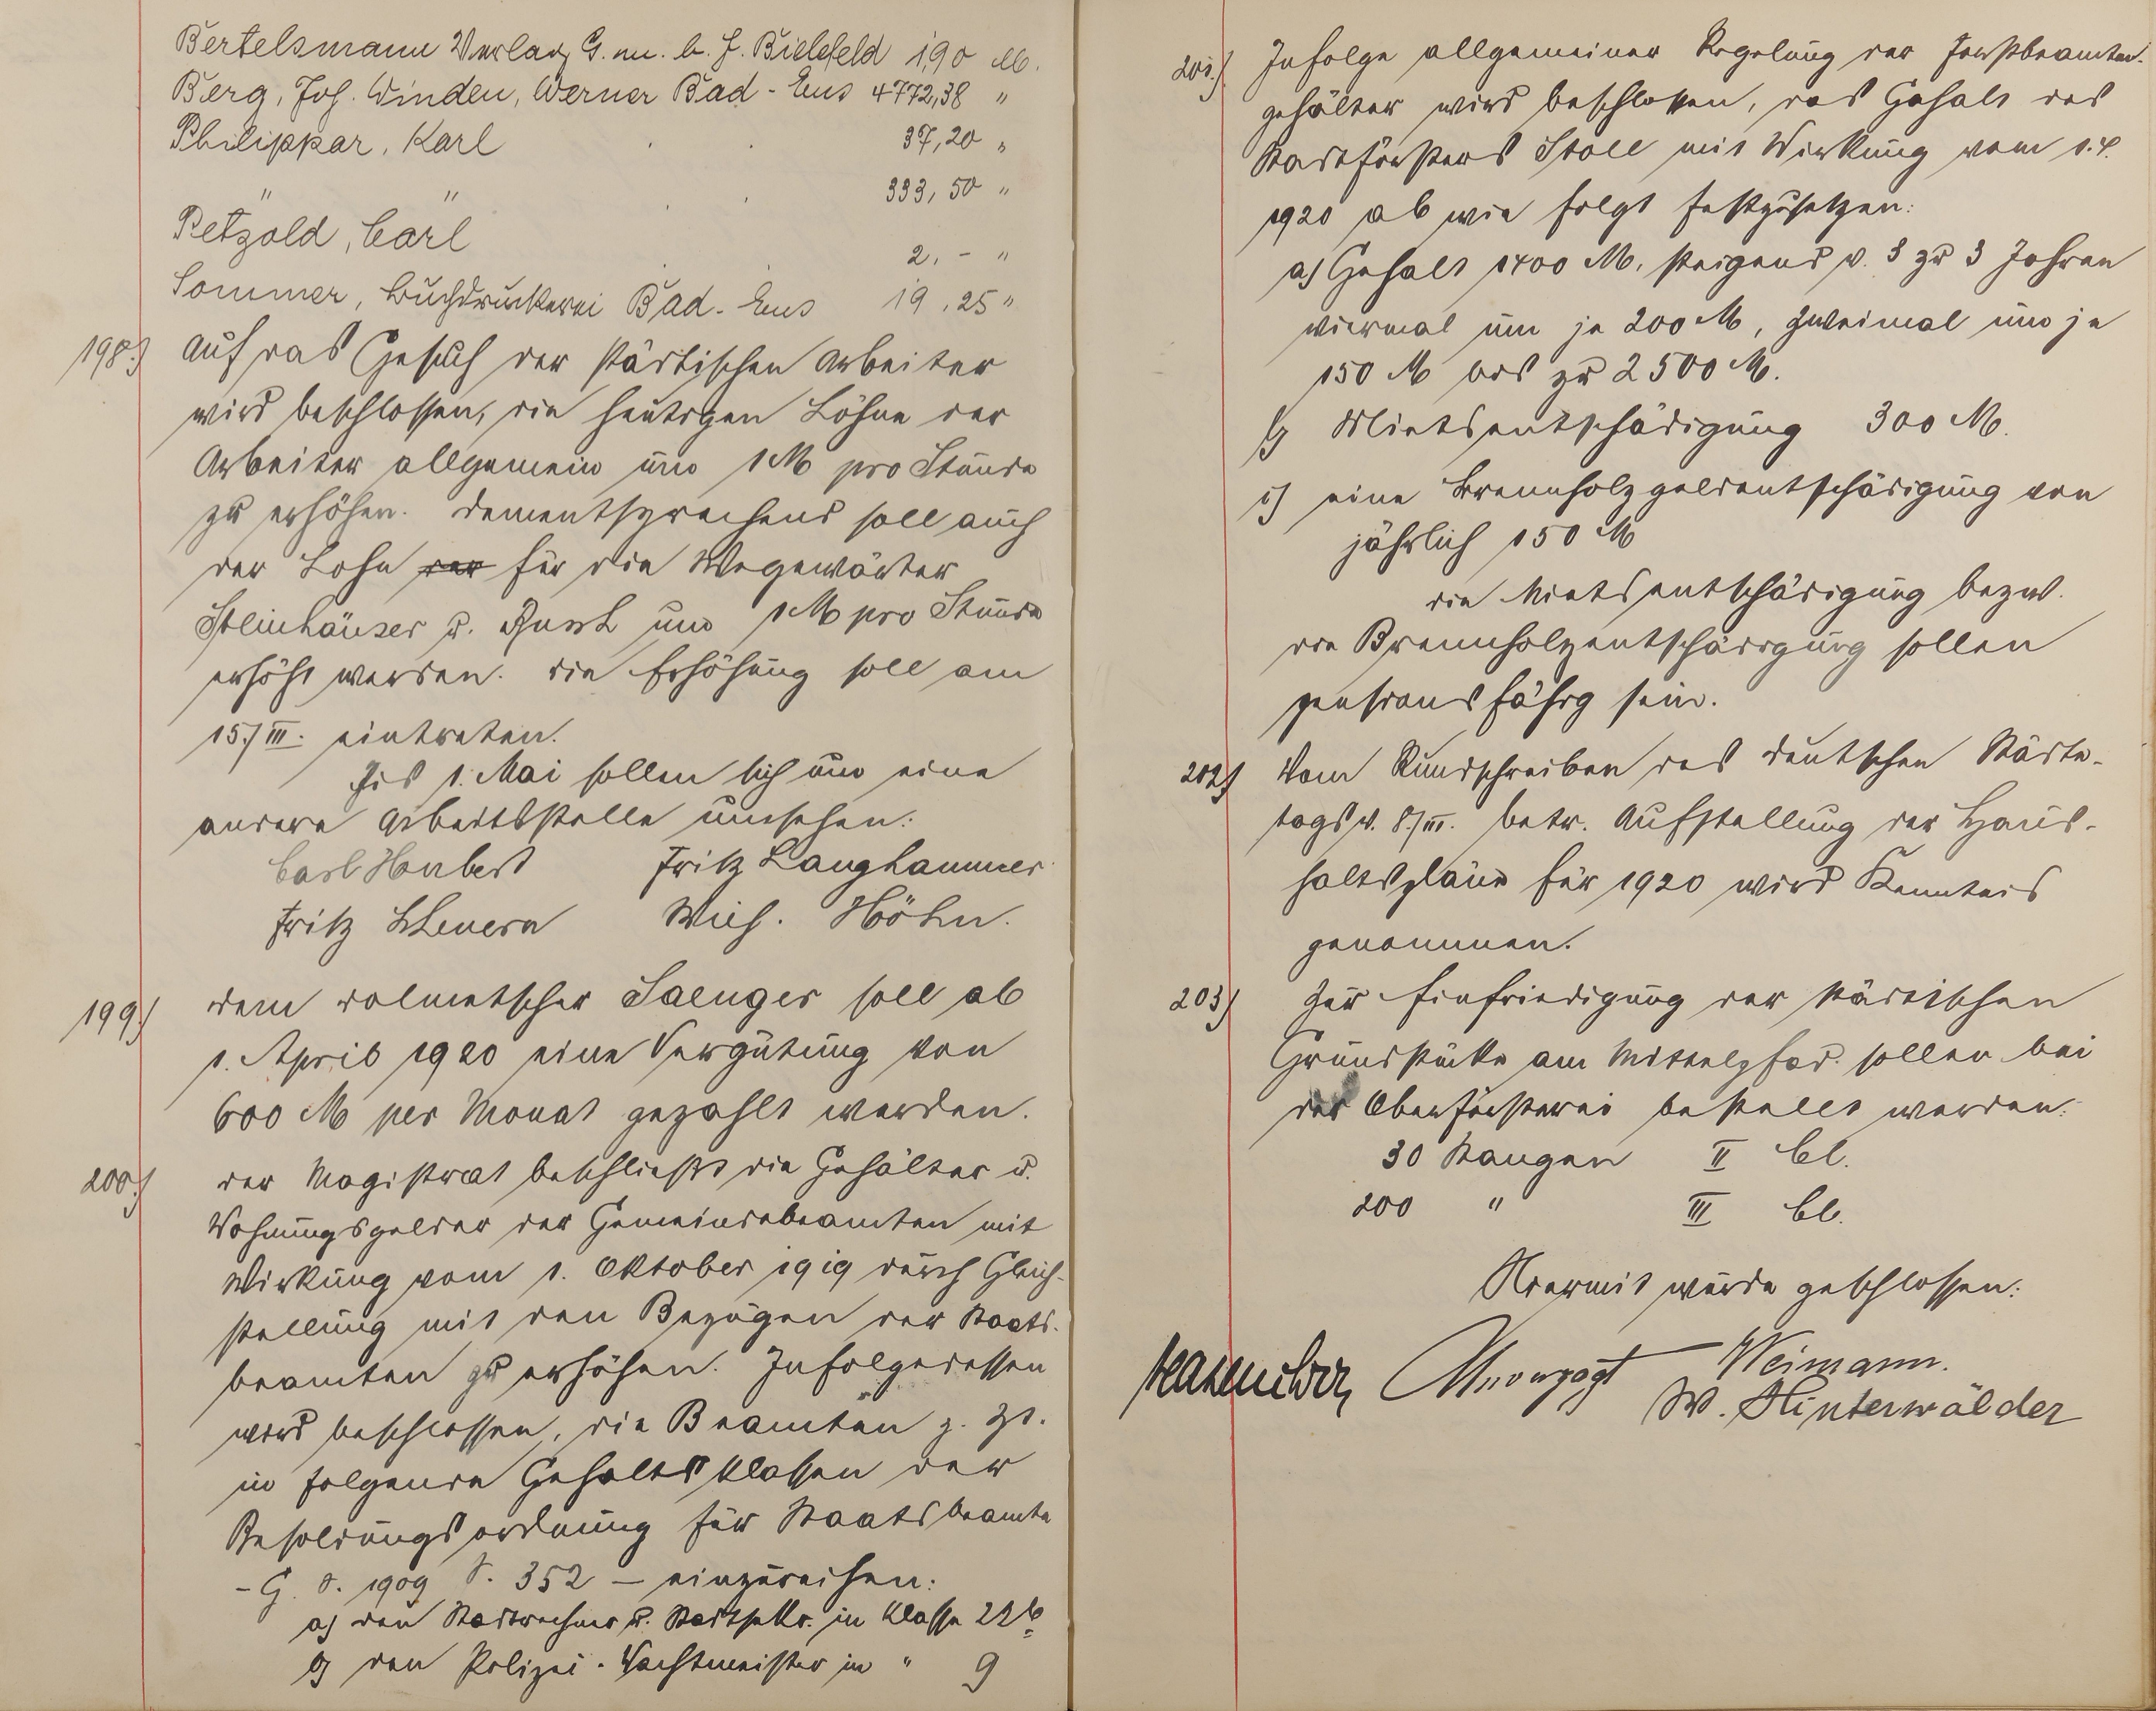 Bertelsmann Verlag G. m. b. H. Bielefeld 1,90 M.
Berg, Joh. Winden, Werner Bad-Ems 4772,38 "
Philippar, Karl 37,20 "
" " 333,50 "
Petzold, Carl 2,- "
Sommer, Buchdruckerei Bad-Ems 19,25 "
198.) Auf das Gesuch der städtischen Arbeiter
wird beschlossen, die heutigen Löhne der
Arbeiter allgemein um 1 M pro Stunde
zu erhöhen. Dementsprechend soll auch
der Lohn der für die Wegewärter
Steinhäuser u. um 1 M pro Stunde
erhöht werden. Die Erhöhung soll am
15./III. eintreten.
Bis 1. Mai sollen sich um eine
andere Arbeitsstelle umsehen:
Carl Fritz Langhammer
Fritz Wilh. Höhn.
199.) Dem Dolmetscher Saenger soll ab
1. April 1920 eine Vergütung von
600 M per Monat gezahlt werden.
200.) Der Magistrat beschließt die Gehälter u.
Wohnungsgelder der Gemeindebeamten mit
Wirkung vom 1. Oktober 1919 durch Gleich-
stellung mit den Bezügen der Staats-
beamten zu erhöhen. Infolgedessen
wird beschlossen, die Beamten z. Zt.
in folgende Gehaltsklassen der
Besoldungsordnung für Staatsbeamte
- G. S. 1909 S. 352 - einzureihen:
a) den Stadtrechner u. Stadtsekr. in Klasse 22b
b) den Polizei-Wachtmeister in " 9
201.) Infolge allgemeiner Regelung der Forstbeamten-
gehälter wird beschlossen, das Gehalt des
Stadtförsters Stoll mit Wirkung vom 1.4.
1920 ab wie folgt festzusetzen:
a) Gehalt 1400 M, steigend v. 3 zu 3 Jahren
viermal um je 200 M, zweimal um je
150 M bis zu 2500 M.
b) Mietsentschädigung 300 M.
c) eine Brennholzgeldentschädigung von
jährlich 150 M
Die Mietsentschädigung bezw.
die Brennholzentschädigung sollen
pensionsfähig sein.
202.) Vom Rundschreiben des deutschen Städte-
tags v. 8./III. betr. Aufstellung der Haus-
haltspläne für 1920 wird Kenntnis
genommen.
203.) Zur Einfriedigung der städtischen
Grundstücke am Mittelpfad sollen bei
der Oberförsterei bestellt werden:
30 Stangen II Cl.
200 " III Cl.
Hiermit wurde geschlossen:
Unverzagt Weimann.
W. Hinterwälder